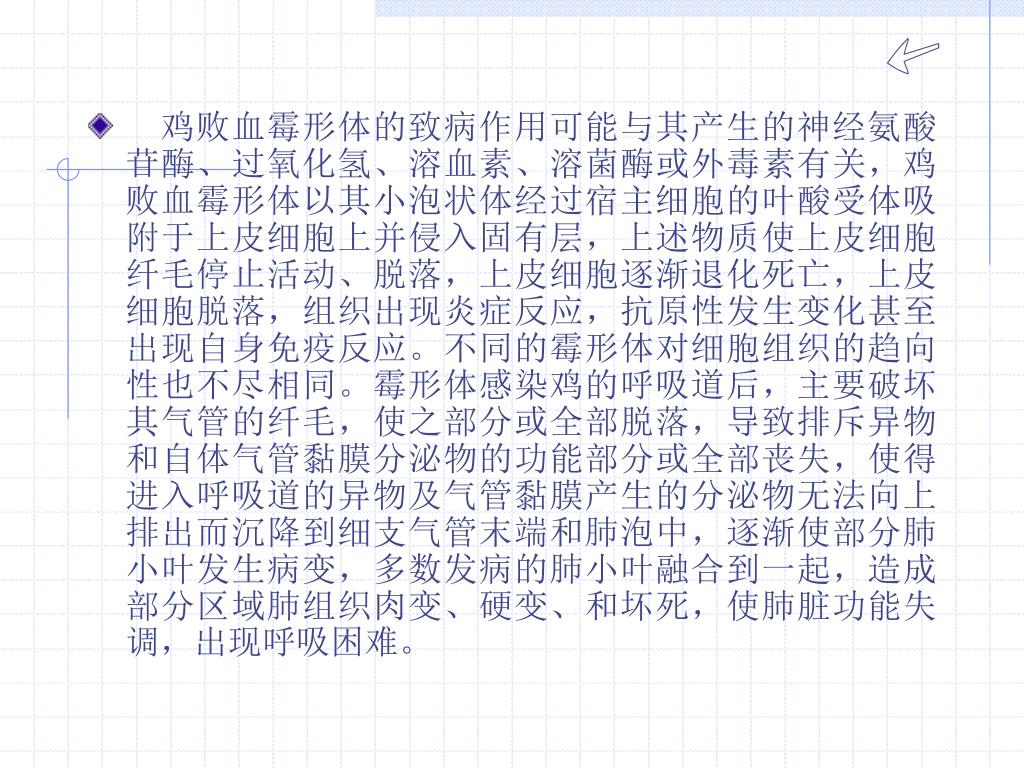 鸡败血霉形体的致病作用可能与其产生的神经氨酸
苷酶、过氧化氢、溶血素、溶菌酶或外毒素有关，鸡
败血霉形体以其小泡状体经过宿主细胞的叶酸受体吸
附于上皮细胞上并侵入固有层，上述物质使上皮细胞
纤毛停止活动、脱落，上皮细胞逐渐退化死亡，上皮
细胞脱落，组织出现炎症反应，抗原性发生变化甚至
出现自身免疫反应。不同的霉形体对细胞组织的趋向
性也不尽相同。霉形体感染鸡的呼吸道后，主要破坏
其气管的纤毛，使之部分或全部脱落，导致排斥异物
和自体气管黏膜分泌物的功能部分或全部丧失，使得
进入呼吸道的异物及气管黏膜产生的分泌物无法向上
排出而沉降到细支气管末端和肺泡中，逐渐使部分肺
小叶发生病变，多数发病的肺小叶融合到一起，造成
部分区域肺组织肉变、硬变、和坏死，使肺脏功能失
调，出现呼吸困难。